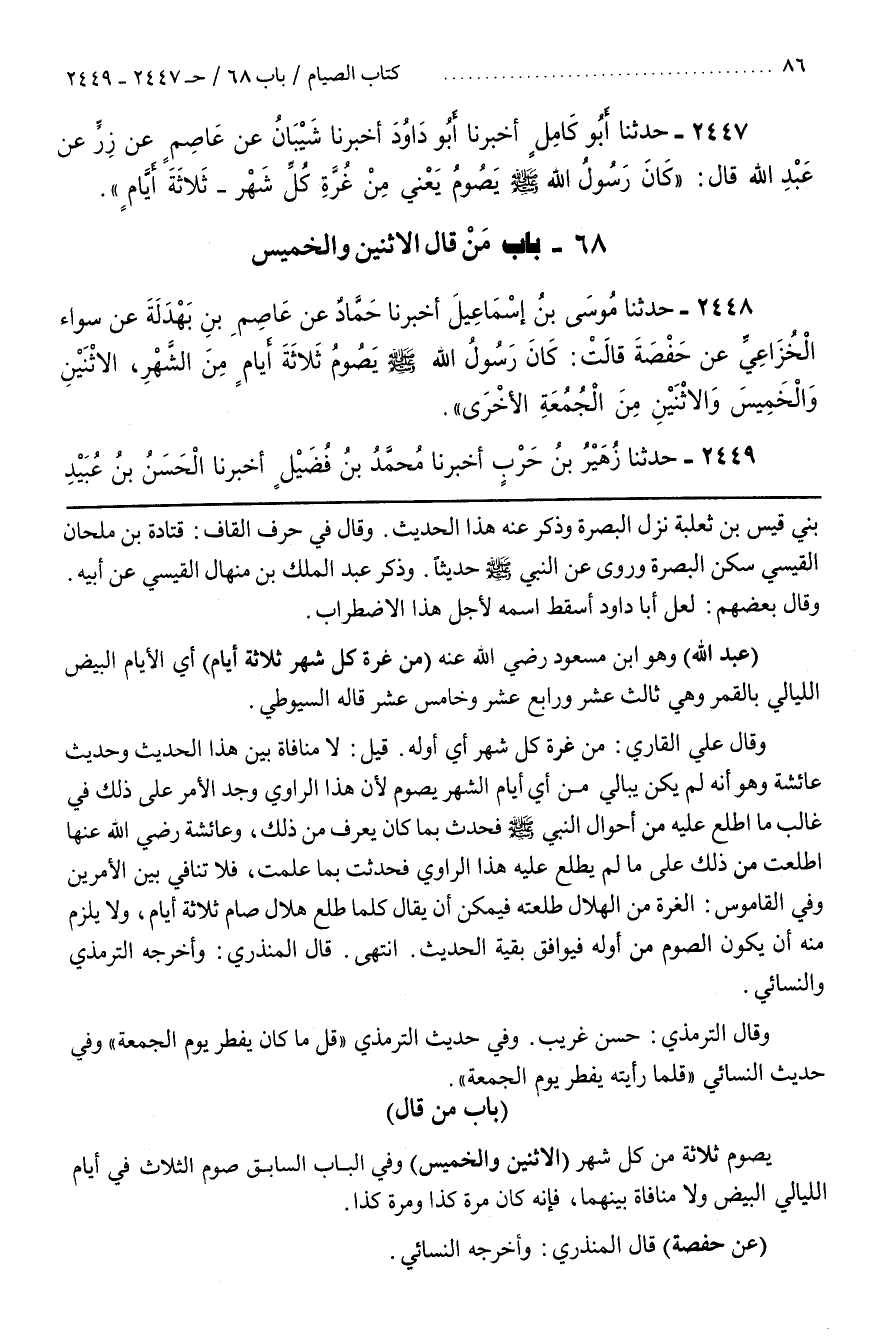 ٨٦ ........................................ كتاب الصيام / باب ٦٨ / حـ ٢٤٤٧ ـ ٢٤٤٩
٢٤٤٧ ـ حدثنا أَبُو كَامِلٍ أخبرنا أَبُو دَاوُدَ أخبرنا شَيْبَانُ عن عَاصِمٍ عن زِرٍّ عن
عَبْدِ الله قال: «كَانَ رَسُولُ الله ﷺ يَصُومُ يَعْني مِنْ غُرَّةِ كُلِّ شَهْر ـ ثَلَاثَةَ أَيَّامٍ».
٦٨ ـ باب مَنْ قال الاثنين والخميس
٢٤٤٨ ـ حدثنا مُوسَى بنُ إسْمَاعِيلَ أخبرنا حَمَّادٌ عن عَاصِمِ بنِ بَهْدَلَةَ عن سواء
الْخُزَاعِيِّ عن حَفْصَةَ قالَتْ: كَانَ رَسُولُ الله ﷺ يَصُومُ ثَلَاثَةَ أَيامٍ مِنَ الشَّهْرِ، الاثْنَيْنِ
وَالْخَمِيسَ وَالاثْنَيْنِ مِنَ الْجُمُعَةِ الأخْرَى».
٢٤٤٩ ـ حدثنا زُهَيْرُ بنُ حَرْبٍ أخبرنا مُحمَّدُ بنُ فُضَيْلٍ أخبرنا الْحَسَنُ بنُ عُبَيْدِ
بني قيس بن ثعلبة نزل البصرة وذكر عنه هذا الحديث. وقال في حرف القاف: قتادة بن ملحان
القيسي سكن البصرة وروى عن النبي ﷺ حديثاً. وذكر عبد الملك بن منهال القيسي عن أبيه.
وقال بعضهم: لعل أبا داود أسقط اسمه لأجل هذا الاضطراب.
(عبد الله) وهو ابن مسعود رضي الله عنه (من غرة كل شهر ثلاثة أيام) أي الأيام البيض
الليالي بالقمر وهي ثالث عشر ورابع عشر وخامس عشر قاله السيوطي.
وقال علي القاري: من غرة كل شهر أي أوله. قيل: لا منافاة بين هذا الحديث وحديث
عائشة وهو أنه لم يكن يبالي من أي أيام الشهر يصوم لأن هذا الراوي وجد الأمر على ذلك في
غالب ما اطلع عليه من أحوال النبي ﷺ فحدث بما كان يعرف من ذلك، وعائشة رضي الله عنها
اطلعت من ذلك على ما لم يطلع عليه هذا الراوي فحدثت بما علمت، فلا تنافي بين الأمرين
وفي القاموس: الغرة من الهلال طلعته فيمكن أن يقال كلما طلع هلال صام ثلاثة أيام، ولا يلزم
منه أن يكون الصوم من أوله فيوافق بقية الحديث. انتهى. قال المنذري: وأخرجه الترمذي
والنسائي.
وقال الترمذي: حسن غريب. وفي حديث الترمذي «قل ما كان يفطر يوم الجمعة» وفي
حديث النسائي «قلما رأيته يفطر يوم الجمعة».
(باب من قال)
يصوم ثلاثة من كل شهر (الاثنين والخميس) وفي الباب السابق صوم الثلاث في أيام
الليالي البيض ولا منافاة بينهما، فإنه كان مرة كذا ومرة كذا.
(عن حفصة) قال المنذري: وأخرجه النسائي.